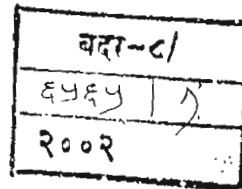 बदर-८/
६५६५
२००२